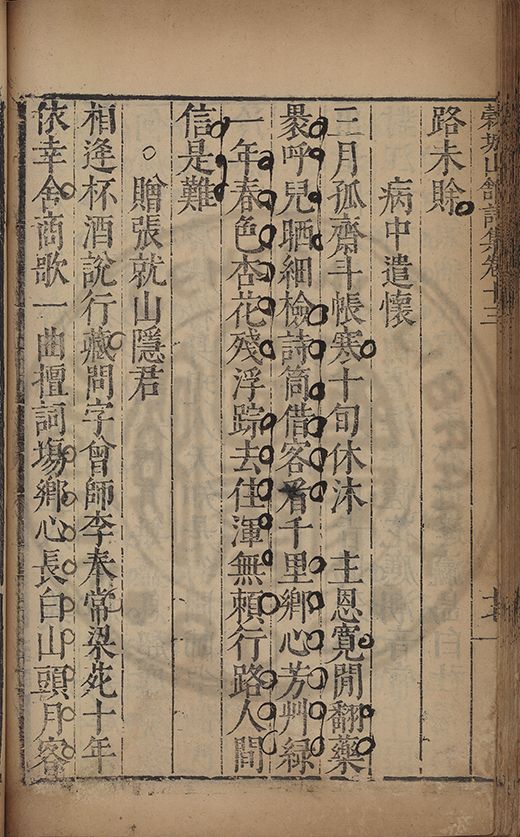 穀城山館詩集卷十三
路未賒
病中遣懷
三月孤齋斗帳寒十旬休沐　主恩寬閒翻藥
褁呼兒晒細檢詩筒借客看千里鄉心芳艸綠
一年春色杏花殘浮踪去住渾無頼行路人間
信是難
贈張就山隱君
相逢杯酒說行藏問字曾師李奉常梁苑十年
依幸舍商歌一曲擅詞塲鄉心長白山頭月客